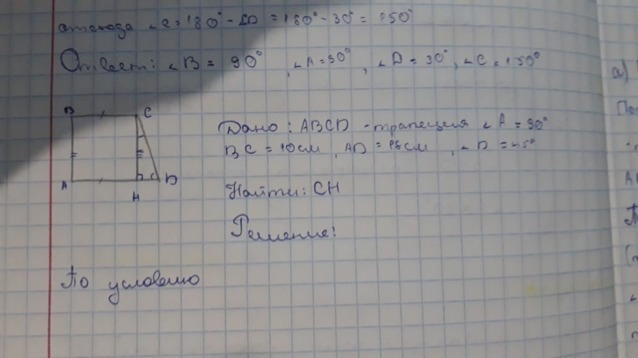 отсюда ∠C = 180° - ∠D = 180° - 30° = 150°
Ответ: ∠B = 90°, ∠A = 90°, ∠D = 30°, ∠C = 150°
B C
A H D
Дано: ABCD - трапеция ∠A = 90°
BC = 10см, AD = см, ∠D = 45°
Найти: CH
Решение:
По условию
а)